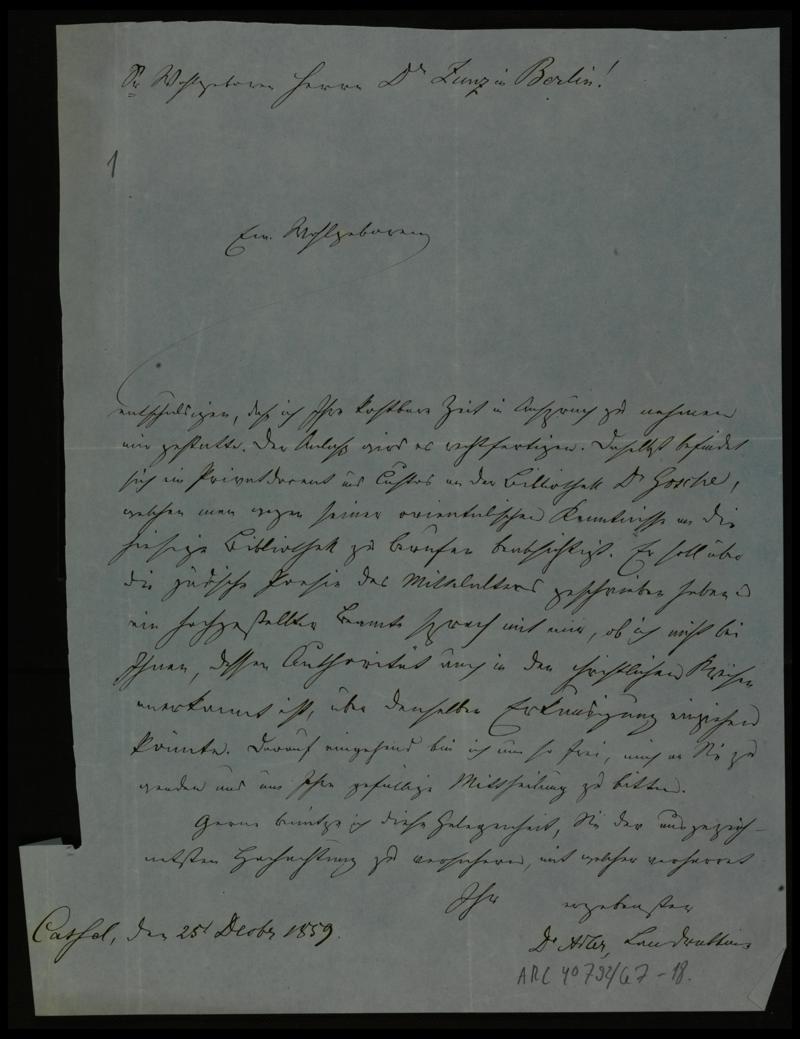 Sr Wohlgeboren Herrn Dr Zunz in Berlin!
1
Ew. Wohlgeboren
entschuldigen, daß ich Ihre kostbare Zeit in Anspruch zu nehmen
mir gestatte. Der Anlaß wird es rechtfertigen. Daselbst befindet
sich ein Privatdocent und Custos an der Bibliothek Dr Gosche,
welchen man wegen seiner orientalischen Kenntnisse an die
hiesige Bibliothek zu berufen beabsichtigt. Er soll über
die jüdische Poesie des Mittelalters geschrieben haben u
ein hochgestellter Beamte sprach mit mir, ob ich nicht bei
Ihnen, dessen Authorität auch in den christlichen Kreisen
anerkannt ist, über denselben Erkundigung einziehen
könnte. Darauf eingehend bin ich nun so frei, mich an Sie zu
wenden und um Ihre gefällige Mittheilung zu bitten.
Gerne benütze ich diese Gelegenheit, Sie der ausgezeich-
netsten Hochachtung zu versichern, mit welcher verharret
Ihr ergebenster
Cassel, den 25t Decbr 1859.
Dr Adler, Landrabbiner
ARC 40 792/G7-18.